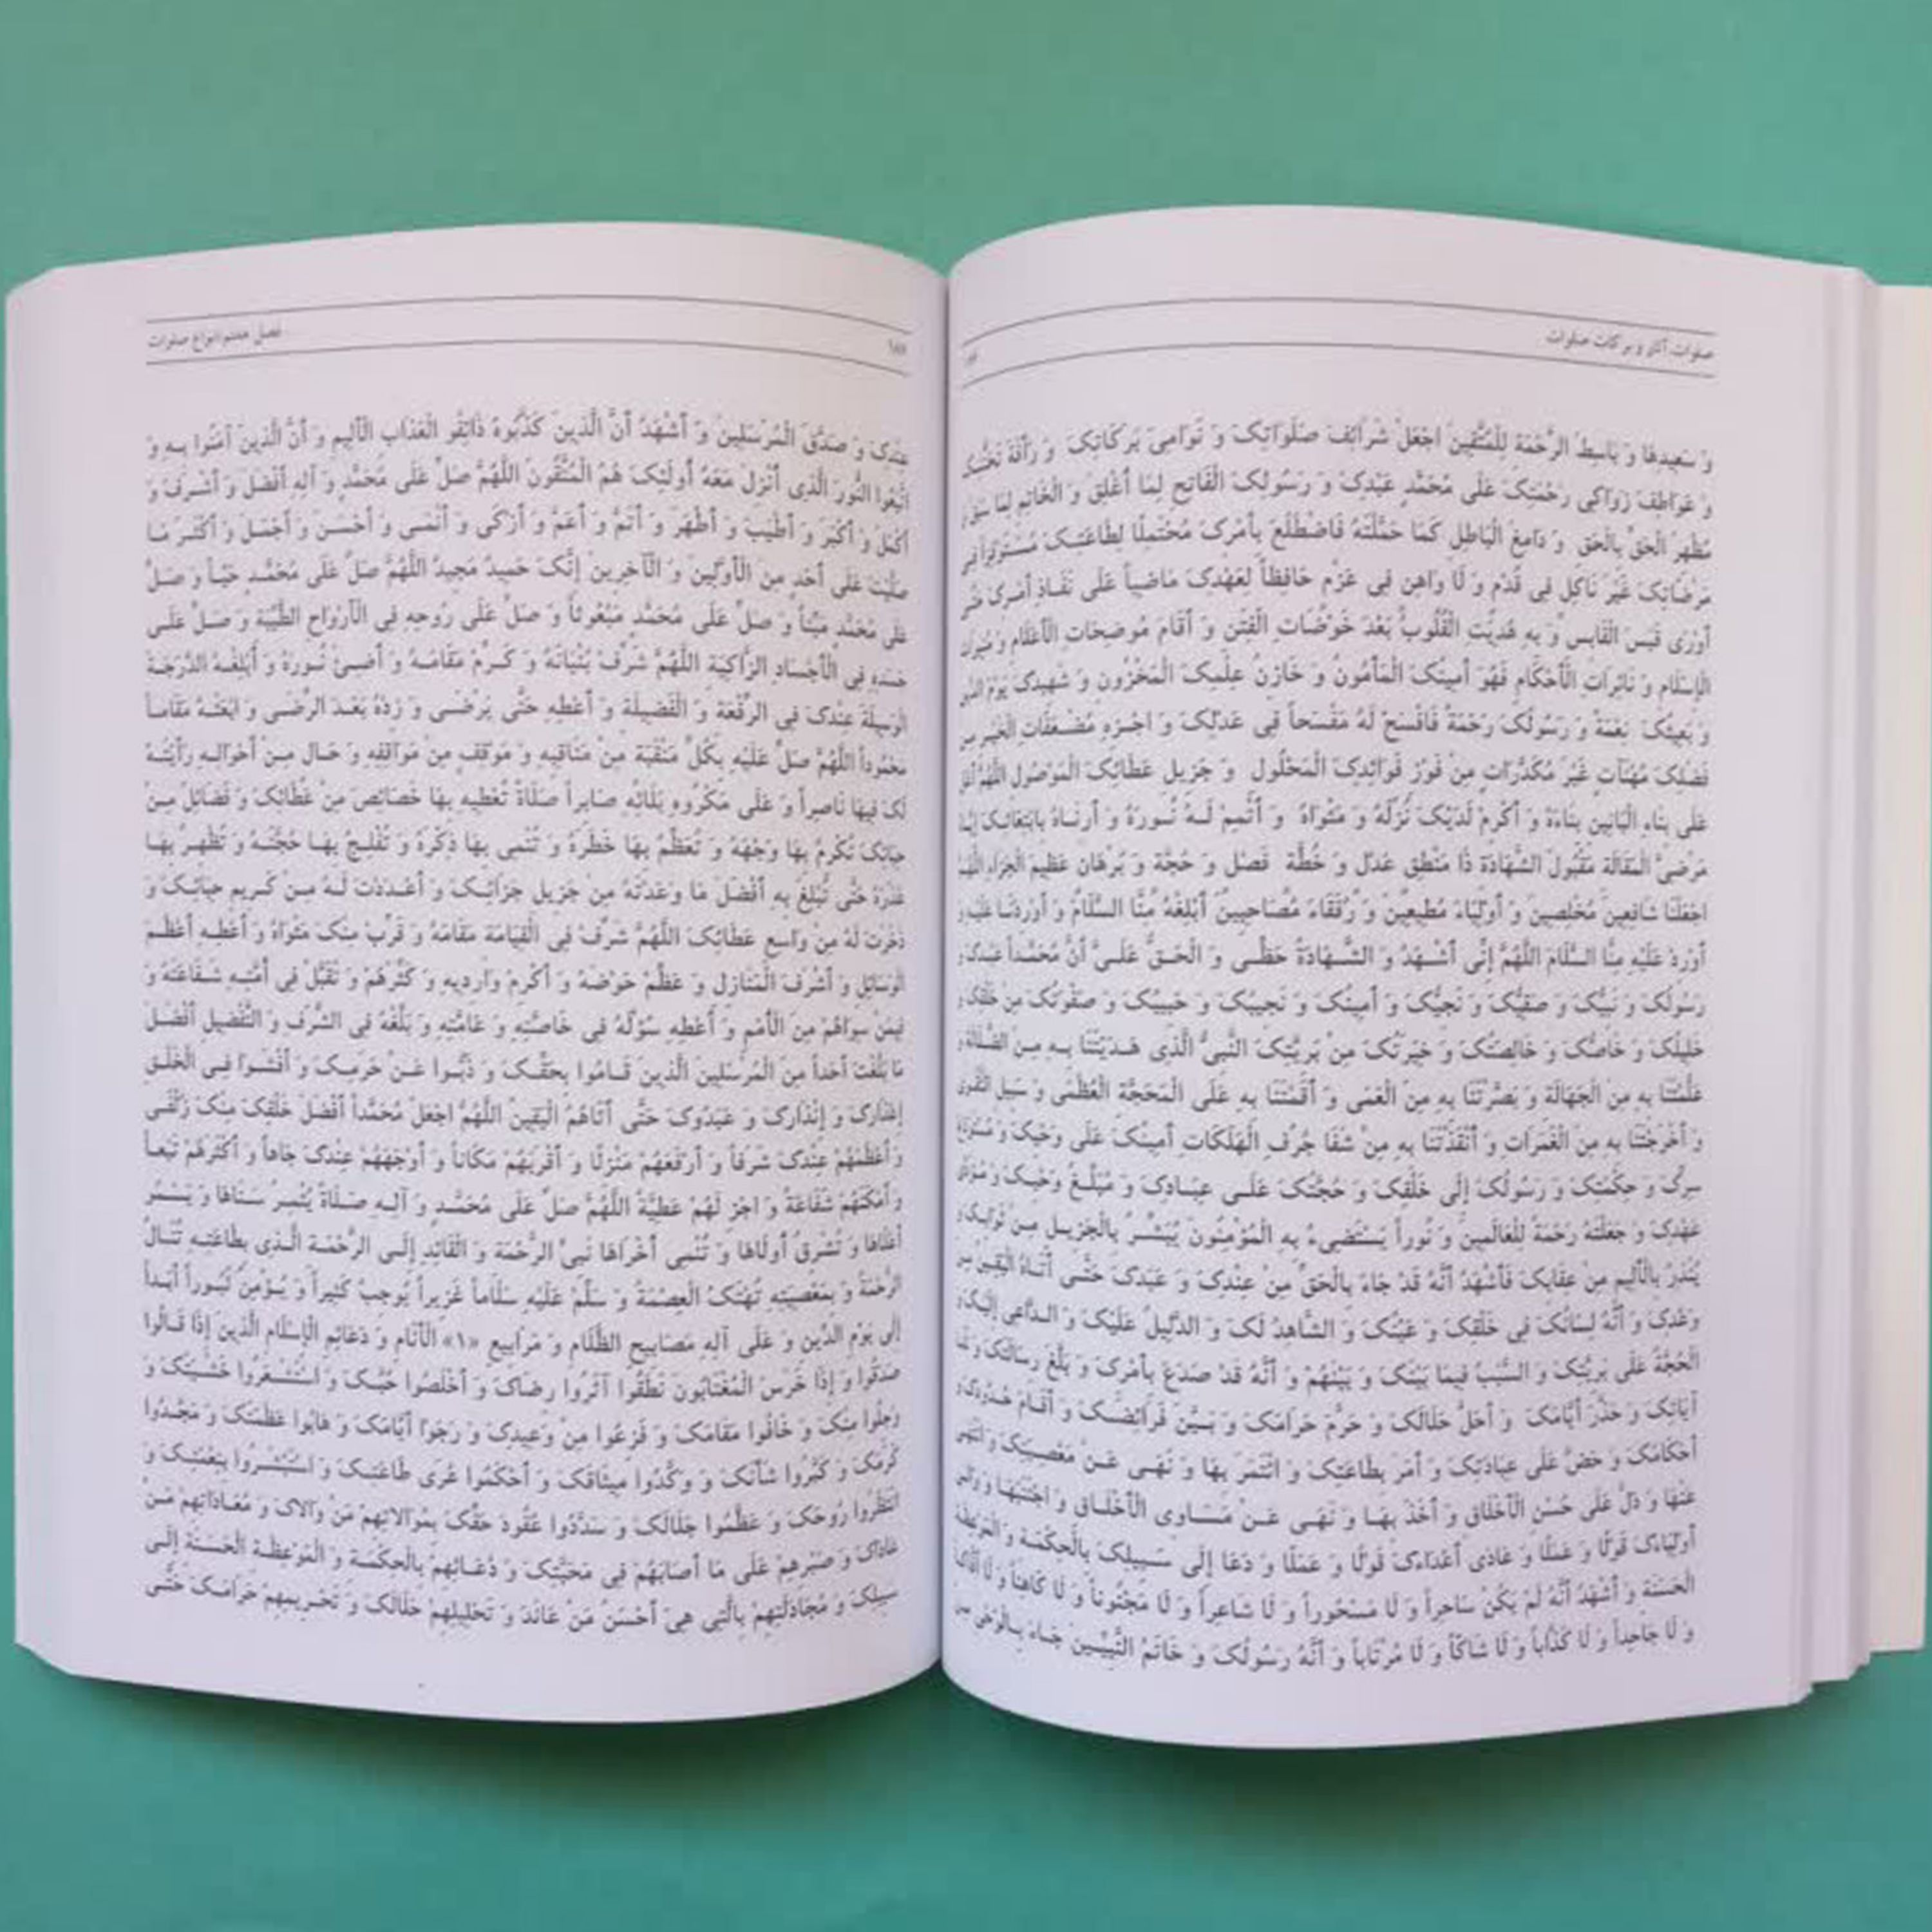 صلوات، آثار و برکات صلوات
و سَعِیدِهَا وَ بَاسِطَ الرَّحْمَةِ لِلْمُتَّقِینَ اجْعَلْ شَرَائِفَ صَلَوَاتِکَ وَ نَوَامِیَ بَرَکَاتِکَ وَ رَأْفَةَ تَحَنُّنِکَ
وَ عَوَاطِفَ زَوَاکِی رَحْمَتِکَ عَلَى مُحَمَّدٍ عَبْدِکَ وَ رَسُولِکَ الْفَاتِحِ لِمَا أُغْلِقَ وَ الْخَاتِمِ لِمَا سَبَقَ
مُظْهِرِ الْحَقِّ بِالْحَقِّ وَ دَامِغِ الْبَاطِلِ کَمَا حَمَّلْتَهُ فَاضْطَلَعَ بِأَمْرِکَ مُحْتَمِلًا لِطَاعَتِکَ مُسْتَوْفِزاً فِی
مَرْضَاتِکَ غَیْرَ نَاکِلٍ فِی قُدْمٍ وَ لَا وَاهِنٍ فِی عَزْمٍ حَافِظاً لِعَهْدِکَ مَاضِیاً عَلَى نَفَاذِ أَمْرِکَ حَتَّى
أَوْرَى قَبَسَ الْقَابِسِ وَ بِهِ هُدِیَتِ الْقُلُوبُ بَعْدَ خَوْضَاتِ الْفِتَنِ وَ أَقَامَ مُوضِحَاتِ الْأَعْلَامِ وَ مُنِیرَاتِ
الْإِسْلَامِ وَ نَائِرَاتِ الْأَحْکَامِ فَهُوَ أَمِینُکَ الْمَأْمُونُ وَ خَازِنُ عِلْمِکَ الْمَخْزُونِ وَ شَهِیدُکَ یَوْمَ الدِّینِ
وَ بَعِیثُکَ نِعْمَةً وَ رَسُولُکَ رَحْمَةً فَافْسَحْ لَهُ مَفْسَحاً فِی عَدْلِکَ وَ اجْزِهِ مُضْعَفَاتِ الْخَیْرِ مِنْ
فَضْلِکَ مُهَنَّآتٍ غَیْرَ مُکَدَّرَاتٍ مِنْ فَوْزِ فَوَائِدِکَ الْمَحْلُولِ وَ جَزِیلِ عَطَائِکَ الْمَوْصُولِ اللَّهُمَّ أَعْلِ
عَلَى بِنَاءِ الْبَانِینَ بِنَاءَهُ وَ أَکْرِمْ لَدَیْکَ نُزُلَهُ وَ مَثْوَاهُ وَ أَتْمِمْ لَهُ نُورَهُ وَ أَرِنَاهُ بِابْتِعَاثِکَ إِیَّاهُ
مَرْضِیَّ الْمَقَالَةِ مَقْبُولَ الشَّهَادَةِ ذَا مَنْطِقٍ عَدْلٍ وَ خُطَّةٍ فَصْلٍ وَ حُجَّةٍ وَ بُرْهَانٍ عَظِیمِ الْجَزَاءِ اللَّهُمَّ
اجْعَلْنَا شَافِعِینَ مُخْلِصِینَ وَ أَوْلِیَاءَ مُطِیعِینَ وَ رُفَقَاءَ مُصَاحِبِینَ أَبْلِغْهُ مِنَّا السَّلَامَ وَ أَوْرِدْنَا عَلَیْهِ وَ
أَوْرِدْ عَلَیْهِ مِنَّا السَّلَامَ اللَّهُمَّ إِنِّی أَشْهَدُ وَ الشَّهَادَةُ حَظِّی وَ الْحَقُّ عَلَیَّ أَنَّ مُحَمَّداً عَبْدُکَ وَ
رَسُولُکَ وَ نَبِیُّکَ وَ صَفِیُّکَ وَ نَجِیُّکَ وَ أَمِینُکَ وَ نَجِیبُکَ وَ حَبِیبُکَ وَ صَفْوَتُکَ مِنْ خَلْقِکَ وَ
خَلِیلُکَ وَ خَاصُّکَ وَ خَالِصَتُکَ وَ خِیَرَتُکَ مِنْ بَرِیَّتِکَ النَّبِیُّ الَّذِی هَدَیْتَنَا بِهِ مِنَ الضَّلَالَةِ وَ
عَلَّمْتَنَا بِهِ مِنَ الْجَهَالَةِ وَ بَصَّرْتَنَا بِهِ مِنَ الْعَمَى وَ أَقَمْتَنَا بِهِ عَلَى الْمَحَجَّةِ الْعُظْمَى وَ سَبِیلِ التَّقْوَى
وَ أَخْرَجْتَنَا بِهِ مِنَ الْغَمَرَاتِ وَ أَنْقَذْتَنَا بِهِ مِنْ شَفَا جُرُفِ الْهَلَکَاتِ أَمِینُکَ عَلَى وَحْیِکَ وَ مُسْتَوْدَعُ
سِرِّکَ وَ حِکْمَتِکَ وَ رَسُولُکَ إِلَى خَلْقِکَ وَ حُجَّتُکَ عَلَى عِبَادِکَ وَ مُبَلِّغُ وَحْیِکَ وَ مُؤَدِّی
عَهْدِکَ وَ جَعَلْتَهُ رَحْمَةً لِلْعَالَمِینَ وَ نُوراً یَسْتَضِیءُ بِهِ الْمُؤْمِنُونَ یُبَشِّرُ بِالْجَزِیلِ مِنْ ثَوَابِکَ وَ
یُنْذِرُ بِالْأَلِیمِ مِنْ عِقَابِکَ فَأَشْهَدُ أَنَّهُ قَدْ جَاءَ بِالْحَقِّ مِنْ عِنْدِکَ وَ عَبَدَکَ حَتَّى أَتَاهُ الْیَقِینُ مِنْ
وَعْدِکَ وَ أَنَّهُ لِسَانُکَ فِی خَلْقِکَ وَ عَیْنُکَ وَ الشَّاهِدُ لَکَ وَ الدَّلِیلُ عَلَیْکَ وَ الدَّاعِی إِلَیْکَ وَ
الْحُجَّةُ عَلَى بَرِیَّتِکَ وَ السَّبَبُ فِیمَا بَیْنَکَ وَ بَیْنَهُمْ وَ أَنَّهُ قَدْ صَدَعَ بِأَمْرِکَ وَ بَلَّغَ رِسَالَتَکَ وَ تَلَا
آیَاتِکَ وَ حَذَّرَ أَیَّامَکَ وَ أَحَلَّ حَلَالَکَ وَ حَرَّمَ حَرَامَکَ وَ بَیَّنَ فَرَائِضَکَ وَ أَقَامَ حُدُودَکَ وَ
أَحْکَامَکَ وَ حَضَّ عَلَى عِبَادَتِکَ وَ أَمَرَ بِطَاعَتِکَ وَ ائْتَمَرَ بِهَا وَ نَهَى عَنْ مَعْصِیَتِکَ وَ انْتَهَى
عَنْهَا وَ دَلَّ عَلَى حُسْنِ الْأَخْلَاقِ وَ أَخَذَ بِهَا وَ نَهَى عَنْ مَسَاوِی الْأَخْلَاقِ وَ اجْتَنَبَهَا وَ وَالَى
أَوْلِیَاءَکَ قَوْلًا وَ عَمَلًا وَ عَادَى أَعْدَاءَکَ قَوْلًا وَ عَمَلًا وَ دَعَا إِلَى سَبِیلِکَ بِالْحِکْمَةِ وَ الْمَوْعِظَةِ
الْحَسَنَةِ وَ أَشْهَدُ أَنَّهُ لَمْ یَکُنْ سَاحِراً وَ لَا مَسْحُوراً وَ لَا شَاعِراً وَ لَا مَجْنُوناً وَ لَا کَاهِناً وَ لَا أَفَّاکاً
وَ لَا جَاحِداً وَ لَا کَذَّاباً وَ لَا شَاکّاً وَ لَا مُرْتَاباً وَ أَنَّهُ رَسُولُکَ وَ خَاتَمُ النَّبِیِّینَ جَاءَ بِالْوَحْیِ مِنْ
فصل هفتم: انواع صلوات
عِنْدِکَ وَ صَدَّقَ الْمُرْسَلِینَ وَ أَشْهَدُ أَنَّ الَّذِینَ کَذَّبُوهُ ذَائِقُو الْعَذَابِ الْأَلِیمِ وَ أَنَّ الَّذِینَ آمَنُوا بِهِ وَ
اتَّبَعُوا النُّورَ الَّذِی أُنْزِلَ مَعَهُ أُولَئِکَ هُمُ الْمُتَّقُونَ اللَّهُمَّ صَلِّ عَلَى مُحَمَّدٍ وَ آلِهِ أَفْضَلَ وَ أَشْرَفَ وَ
أَکْمَلَ وَ أَکْبَرَ وَ أَطْیَبَ وَ أَطْهَرَ وَ أَتَمَّ وَ أَعَمَّ وَ أَزْکَى وَ أَنْمَى وَ أَحْسَنَ وَ أَجْمَلَ وَ أَکْثَرَ مَا
صَلَّیْتَ عَلَى أَحَدٍ مِنَ الْأَوَّلِینَ وَ الْآخِرِینَ إِنَّکَ حَمِیدٌ مَجِیدٌ اللَّهُمَّ صَلِّ عَلَى مُحَمَّدٍ حَیّاً وَ صَلِّ
عَلَى مُحَمَّدٍ مَیِّتاً وَ صَلِّ عَلَى مُحَمَّدٍ مَبْعُوثاً وَ صَلِّ عَلَى رُوحِهِ فِی الْأَرْوَاحِ الطَّیِّبَةِ وَ صَلِّ عَلَى
جَسَدِهِ فِی الْأَجْسَادِ الزَّاکِیَةِ اللَّهُمَّ شَرِّفْ بُنْیَانَهُ وَ کَرِّمْ مَقَامَهُ وَ أَضِئْ نُورَهُ وَ أَبْلِغْهُ الدَّرَجَةَ
الْوَسِیلَةَ عِنْدَکَ فِی الرِّفْعَةِ وَ الْفَضِیلَةِ وَ أَعْطِهِ حَتَّى یَرْضَى وَ زِدْهُ بَعْدَ الرِّضَى وَ ابْعَثْهُ مَقَاماً
مَحْمُوداً اللَّهُمَّ صَلِّ عَلَیْهِ بِکُلِّ مَنْقَبَةٍ مِنْ مَنَاقِبِهِ وَ مَوْقِفٍ مِنْ مَوَاقِفِهِ وَ حَالٍ مِنْ أَحْوَالِهِ رَأَیْتَهُ
لَکَ فِیهَا نَاصِراً وَ عَلَى مَکْرُوهِ بَلَائِهِ صَابِراً صَلَاةً تُعْطِیهِ بِهَا خَصَائِصَ مِنْ عَطَائِکَ وَ فَضَائِلَ مِنْ
حِبَائِکَ تُکْرِمُ بِهَا وَجْهَهُ وَ تُعَظِّمُ بِهَا خَطَرَهُ وَ تُنْمِی بِهَا ذِکْرَهُ وَ تُفْلِجُ بِهَا حُجَّتَهُ وَ تُظْهِرُ بِهَا
عُذْرَهُ حَتَّى تُبْلِغَ بِهِ أَفْضَلَ مَا وَعَدْتَهُ مِنْ جَزِیلِ جَزَائِکَ وَ أَعْدَدْتَ لَهُ مِنْ کَرِیمِ حِبَائِکَ وَ
ذَخَرْتَ لَهُ مِنْ وَاسِعِ عَطَائِکَ اللَّهُمَّ شَرِّفْ فِی الْقِیَامَةِ مَقَامَهُ وَ قَرِّبْ مِنْکَ مَثْوَاهُ وَ أَعْطِهِ أَعْظَمَ
الْوَسَائِلِ وَ أَشْرَفَ الْمَنَازِلِ وَ عَظِّمْ حَوْضَهُ وَ أَکْرِمْ وَارِدِیهِ وَ کَثِّرْهُمْ وَ تَقَبَّلْ فِی أُمَّتِهِ شَفَاعَتَهُ وَ
فِیمَنْ سِوَاهُمْ مِنَ الْأُمَمِ وَ أَعْطِهِ سُؤْلَهُ فِی خَاصَّتِهِ وَ عَامَّتِهِ وَ بَلِّغْهُ فِی الشَّرَفِ وَ التَّفْضِیلِ أَفْضَلَ
مَا بَلَّغْتَ أَحَداً مِنَ الْمُرْسَلِینَ الَّذِینَ قَامُوا بِحَقِّکَ وَ ذَبُّوا عَنْ حَرَمِکَ وَ أَفْشَوْا فِی الْخَلْقِ
إِعْذَارَکَ وَ إِنْذَارَکَ وَ عَبَدُوکَ حَتَّى أَتَاهُمُ الْیَقِینُ اللَّهُمَّ اجْعَلْ مُحَمَّداً أَفْضَلَ خَلْقِکَ مِنْکَ زُلْفَى
وَ أَعْظَمَهُمْ عِنْدَکَ شَرَفاً وَ أَرْفَعَهُمْ مَنْزِلًا وَ أَقْرَبَهُمْ مَکَاناً وَ أَوْجَهَهُمْ عِنْدَکَ جَاهاً وَ أَکْثَرَهُمْ تَبَعاً
وَ أَمْکَنَهُمْ شَفَاعَةً وَ أَجْزَلَهُمْ عَطِیَّةً اللَّهُمَّ صَلِّ عَلَى مُحَمَّدٍ وَ آلِهِ صَلَاةً یُثْمِرُ سَنَاهَا وَ یَسْمُو
أَعْلَاهَا وَ تُشْرِقُ أُولَاهَا وَ تُنْمِی أُخْرَاهَا نَبِیِّ الرَّحْمَةِ وَ الْقَائِدِ إِلَى الرَّحْمَةِ الَّذِی بِطَاعَتِهِ تُنَالُ
الرَّحْمَةُ وَ بِمَعْصِیَتِهِ تُهْتَکُ الْعِصْمَةُ وَ سَلِّمْ عَلَیْهِ سَلَاماً غَزِیراً یُوجِبُ کَثِیراً وَ یُؤْمِنُ ثُبُوراً أَبَداً
إِلَى یَوْمِ الدِّینِ وَ عَلَى آلِهِ مَصَابِیحِ الظَّلَامِ وَ مَرَابِیعِ «۱» الْأَنَامِ وَ دَعَائِمِ الْإِسْلَامِ الَّذِینَ إِذَا قَالُوا
صَدَقُوا وَ إِذَا خَرِسَ الْمُغْتَابُونَ نَطَقُوا آثَرُوا رِضَاکَ وَ أَخْلَصُوا حُبَّکَ وَ اسْتَشْعَرُوا خَشْیَتَکَ وَ
وَجِلُوا مِنْکَ وَ خَافُوا مَقَامَکَ وَ فَزِعُوا مِنْ وَعِیدِکَ وَ رَجَوْا أَیَّامَکَ وَ هَابُوا عَظَمَتَکَ وَ مَجَّدُوا
کَرَمَکَ وَ کَبَّرُوا شَأْنَکَ وَ وَکَّدُوا مِیثَاقَکَ وَ أَحْکَمُوا عُرَى طَاعَتِکَ وَ اسْتَبْشَرُوا بِنِعْمَتِکَ وَ
انْتَظَرُوا رَوْحَکَ وَ عَظَّمُوا جَلَالَکَ وَ سَدَّدُوا عُقُودَ حَقِّکَ بِمُوَالَاتِهِمْ مَنْ وَالَاکَ وَ مُعَادَاتِهِمْ مَنْ
عَادَاکَ وَ صَبْرِهِمْ عَلَى مَا أَصَابَهُمْ فِی مَحَبَّتِکَ وَ دُعَائِهِمْ بِالْحِکْمَةِ وَ الْمَوْعِظَةِ الْحَسَنَةِ إِلَى
سَبِیلِکَ وَ مُجَادَلَتِهِمْ بِالَّتِی هِیَ أَحْسَنُ مَنْ عَانَدَ وَ تَحْلِیلِهِمْ حَلَالَکَ وَ تَحْرِیمِهِمْ حَرَامَکَ حَتَّى